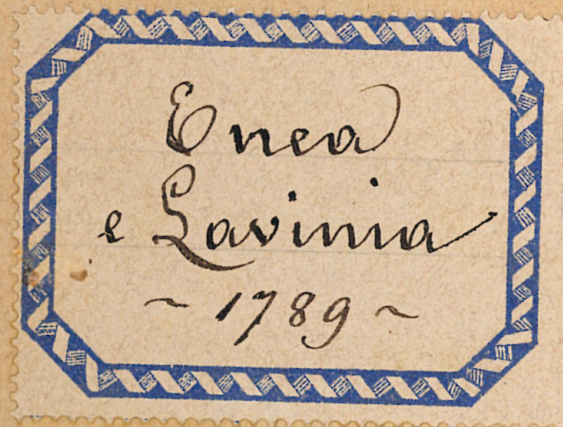 Enea
e Lavinia
~ 1789 ~